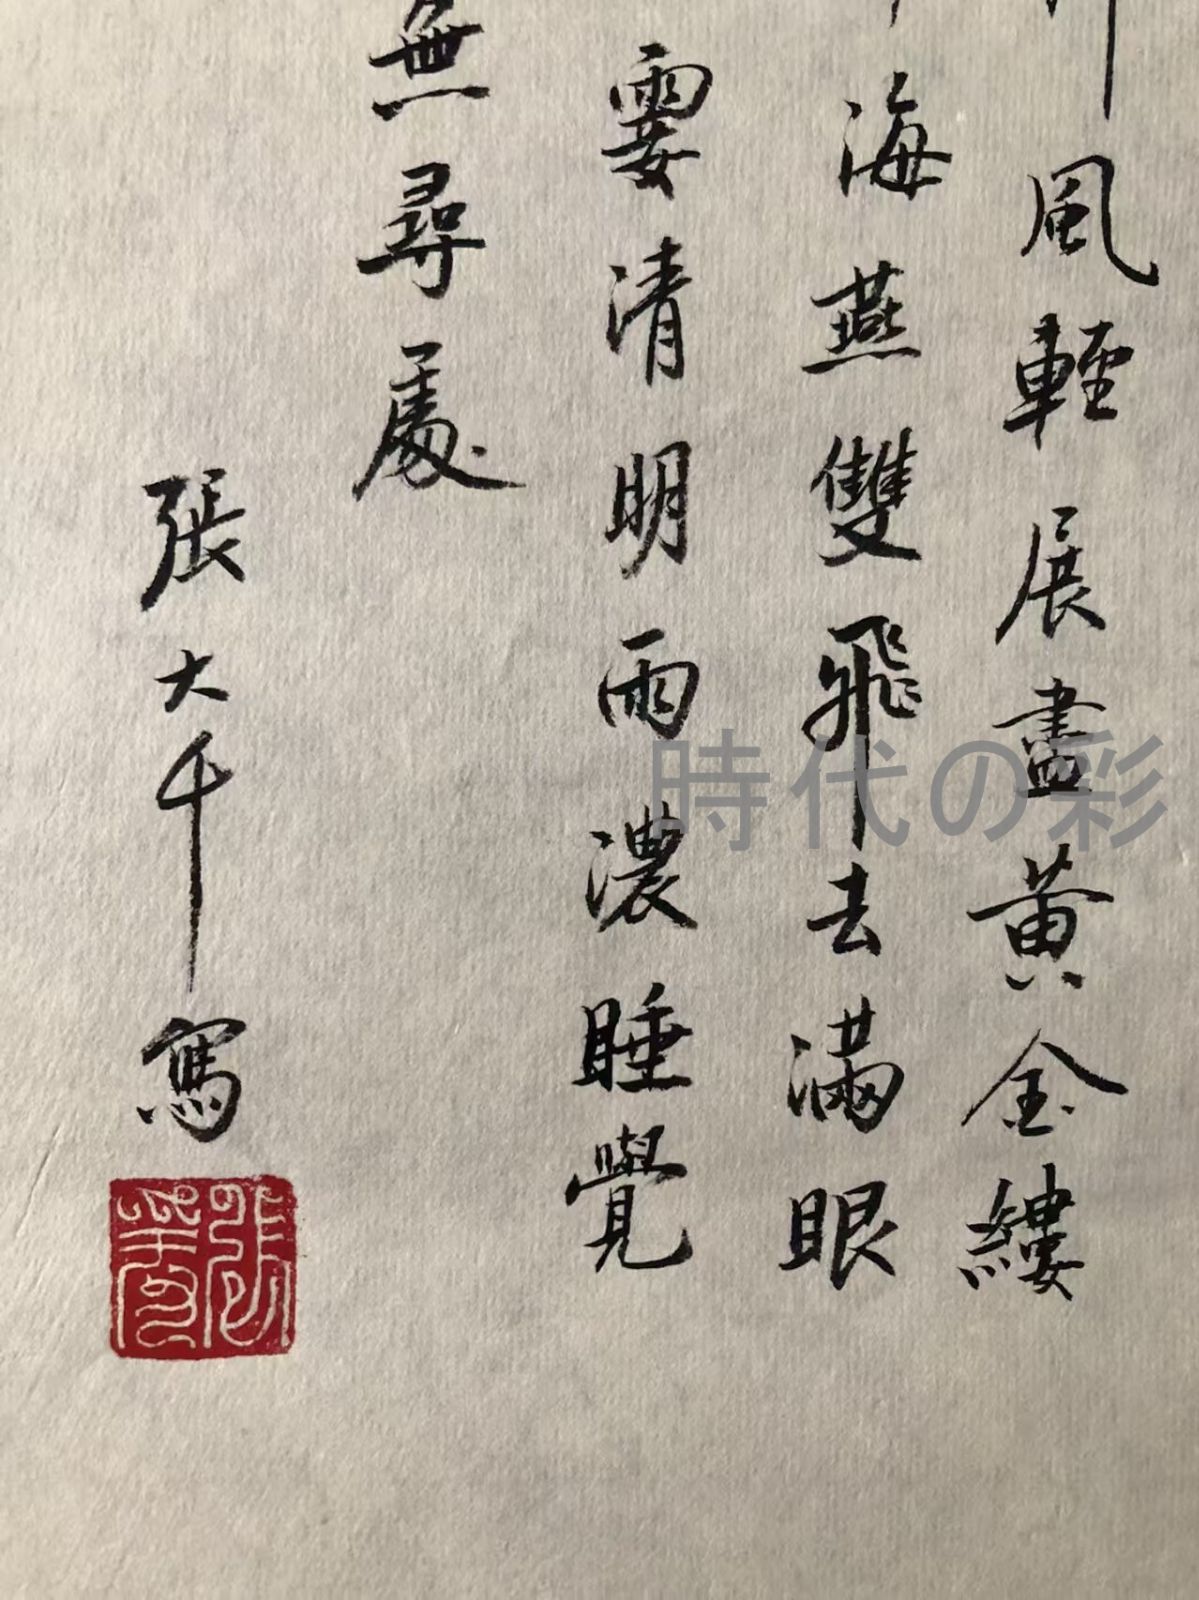 風輕展盡黃金縷
海燕雙飛去滿眼
霎清明雨濃睡覺
無尋處
張大千寫
張爰
時代の彩